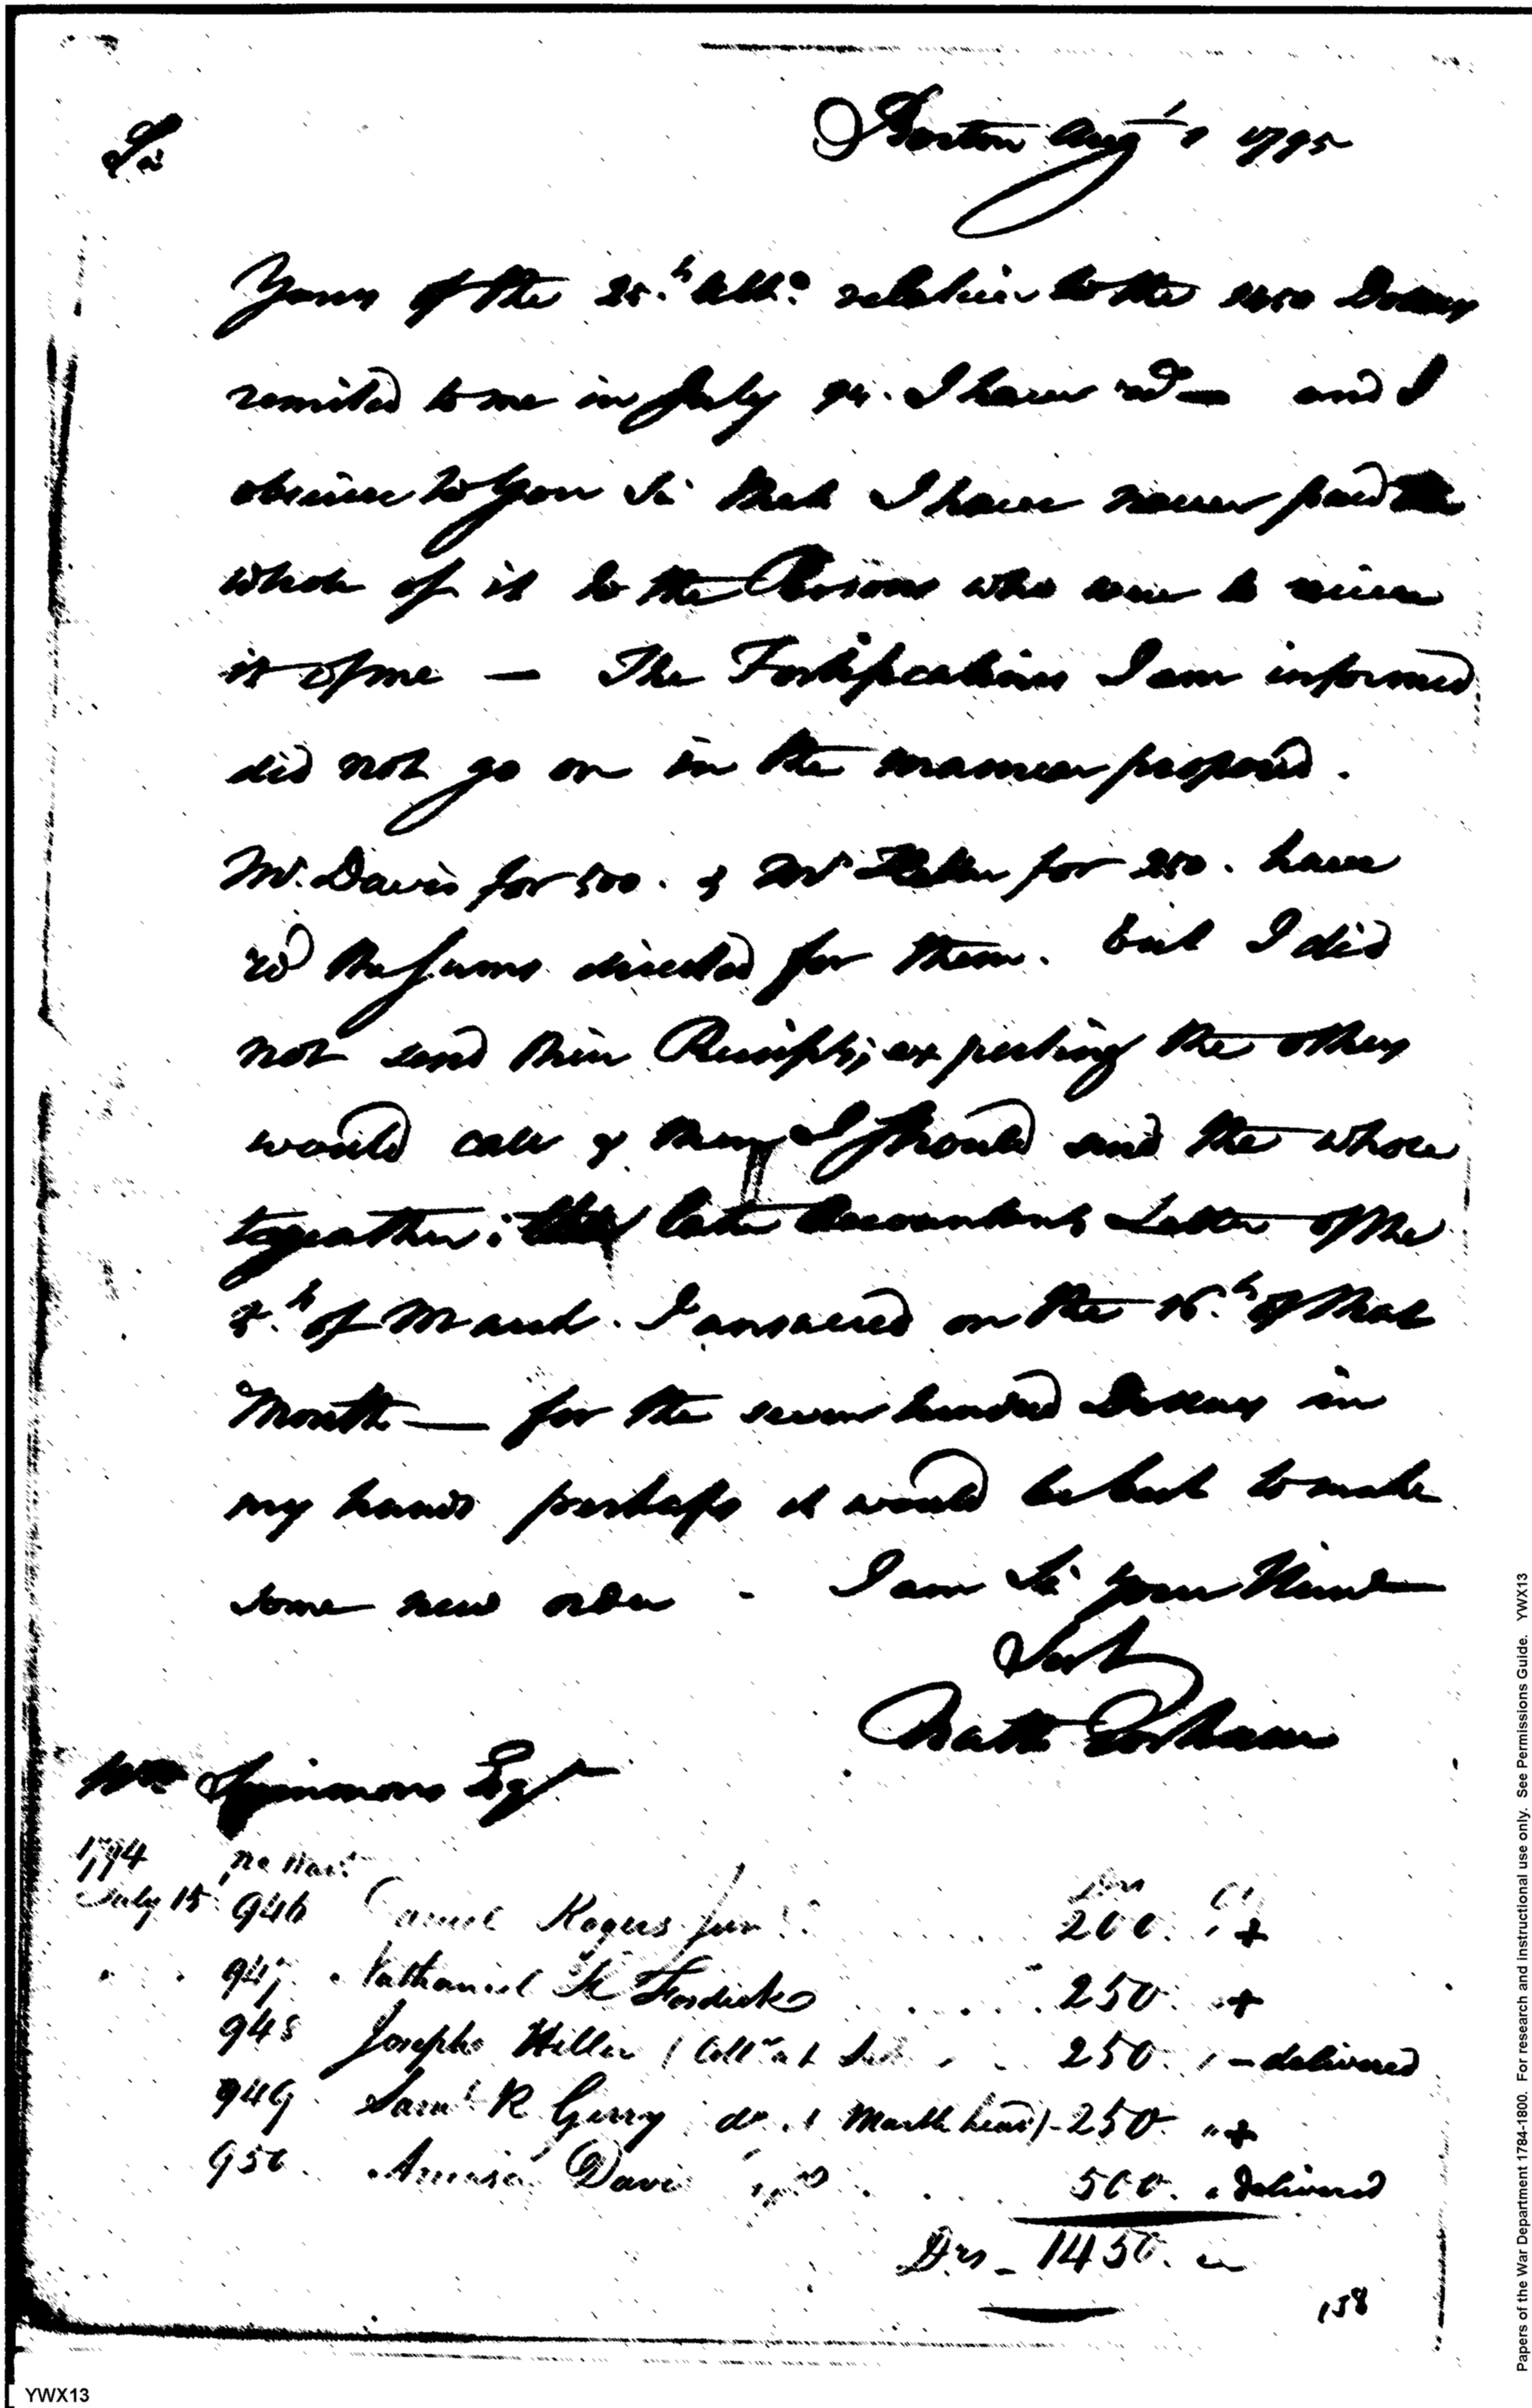 Boston Augt 1 1795
Sir
Yours of the 25.h Ulto. relative to the 1450 Dollars
remited to me in July 94. I have recd — and I
observe to you Sir that I have never paid the
whole of it to the Persons who were to receive
it of me — The Fortifications I am informed
did not go on in the manner proposed.
Mr. Davis for 500. & Mr Hiller for 250. have
recd the sums directed for them. but I did
not send their Receipts, expecting the others
would call & then I should send the whole
togeather. the late Accountants Letter of the
h of March. I answered on the 16.h of that
Month — for the seven hundred Dollars in
my hands perhaps it would be best to make
some new order - I am Sir your Hume
Sert
Nath Gorham
Wm Simmons Esqr
1794
July 15 946 Samuel Rogers Junr 200. +
947 Nathaniel F Fosdick 250. +
948 Joseph Hiller (Collr at 250. - delivered
949 Saml R Gerry do. Marblehead) - 250. +
950. Amasa Davis 500. delivered
Drs - 1450.
138
Papers of the War Department 1784-1800. For research and instructional use only. See Permissions Guide. YWX13
YWX13